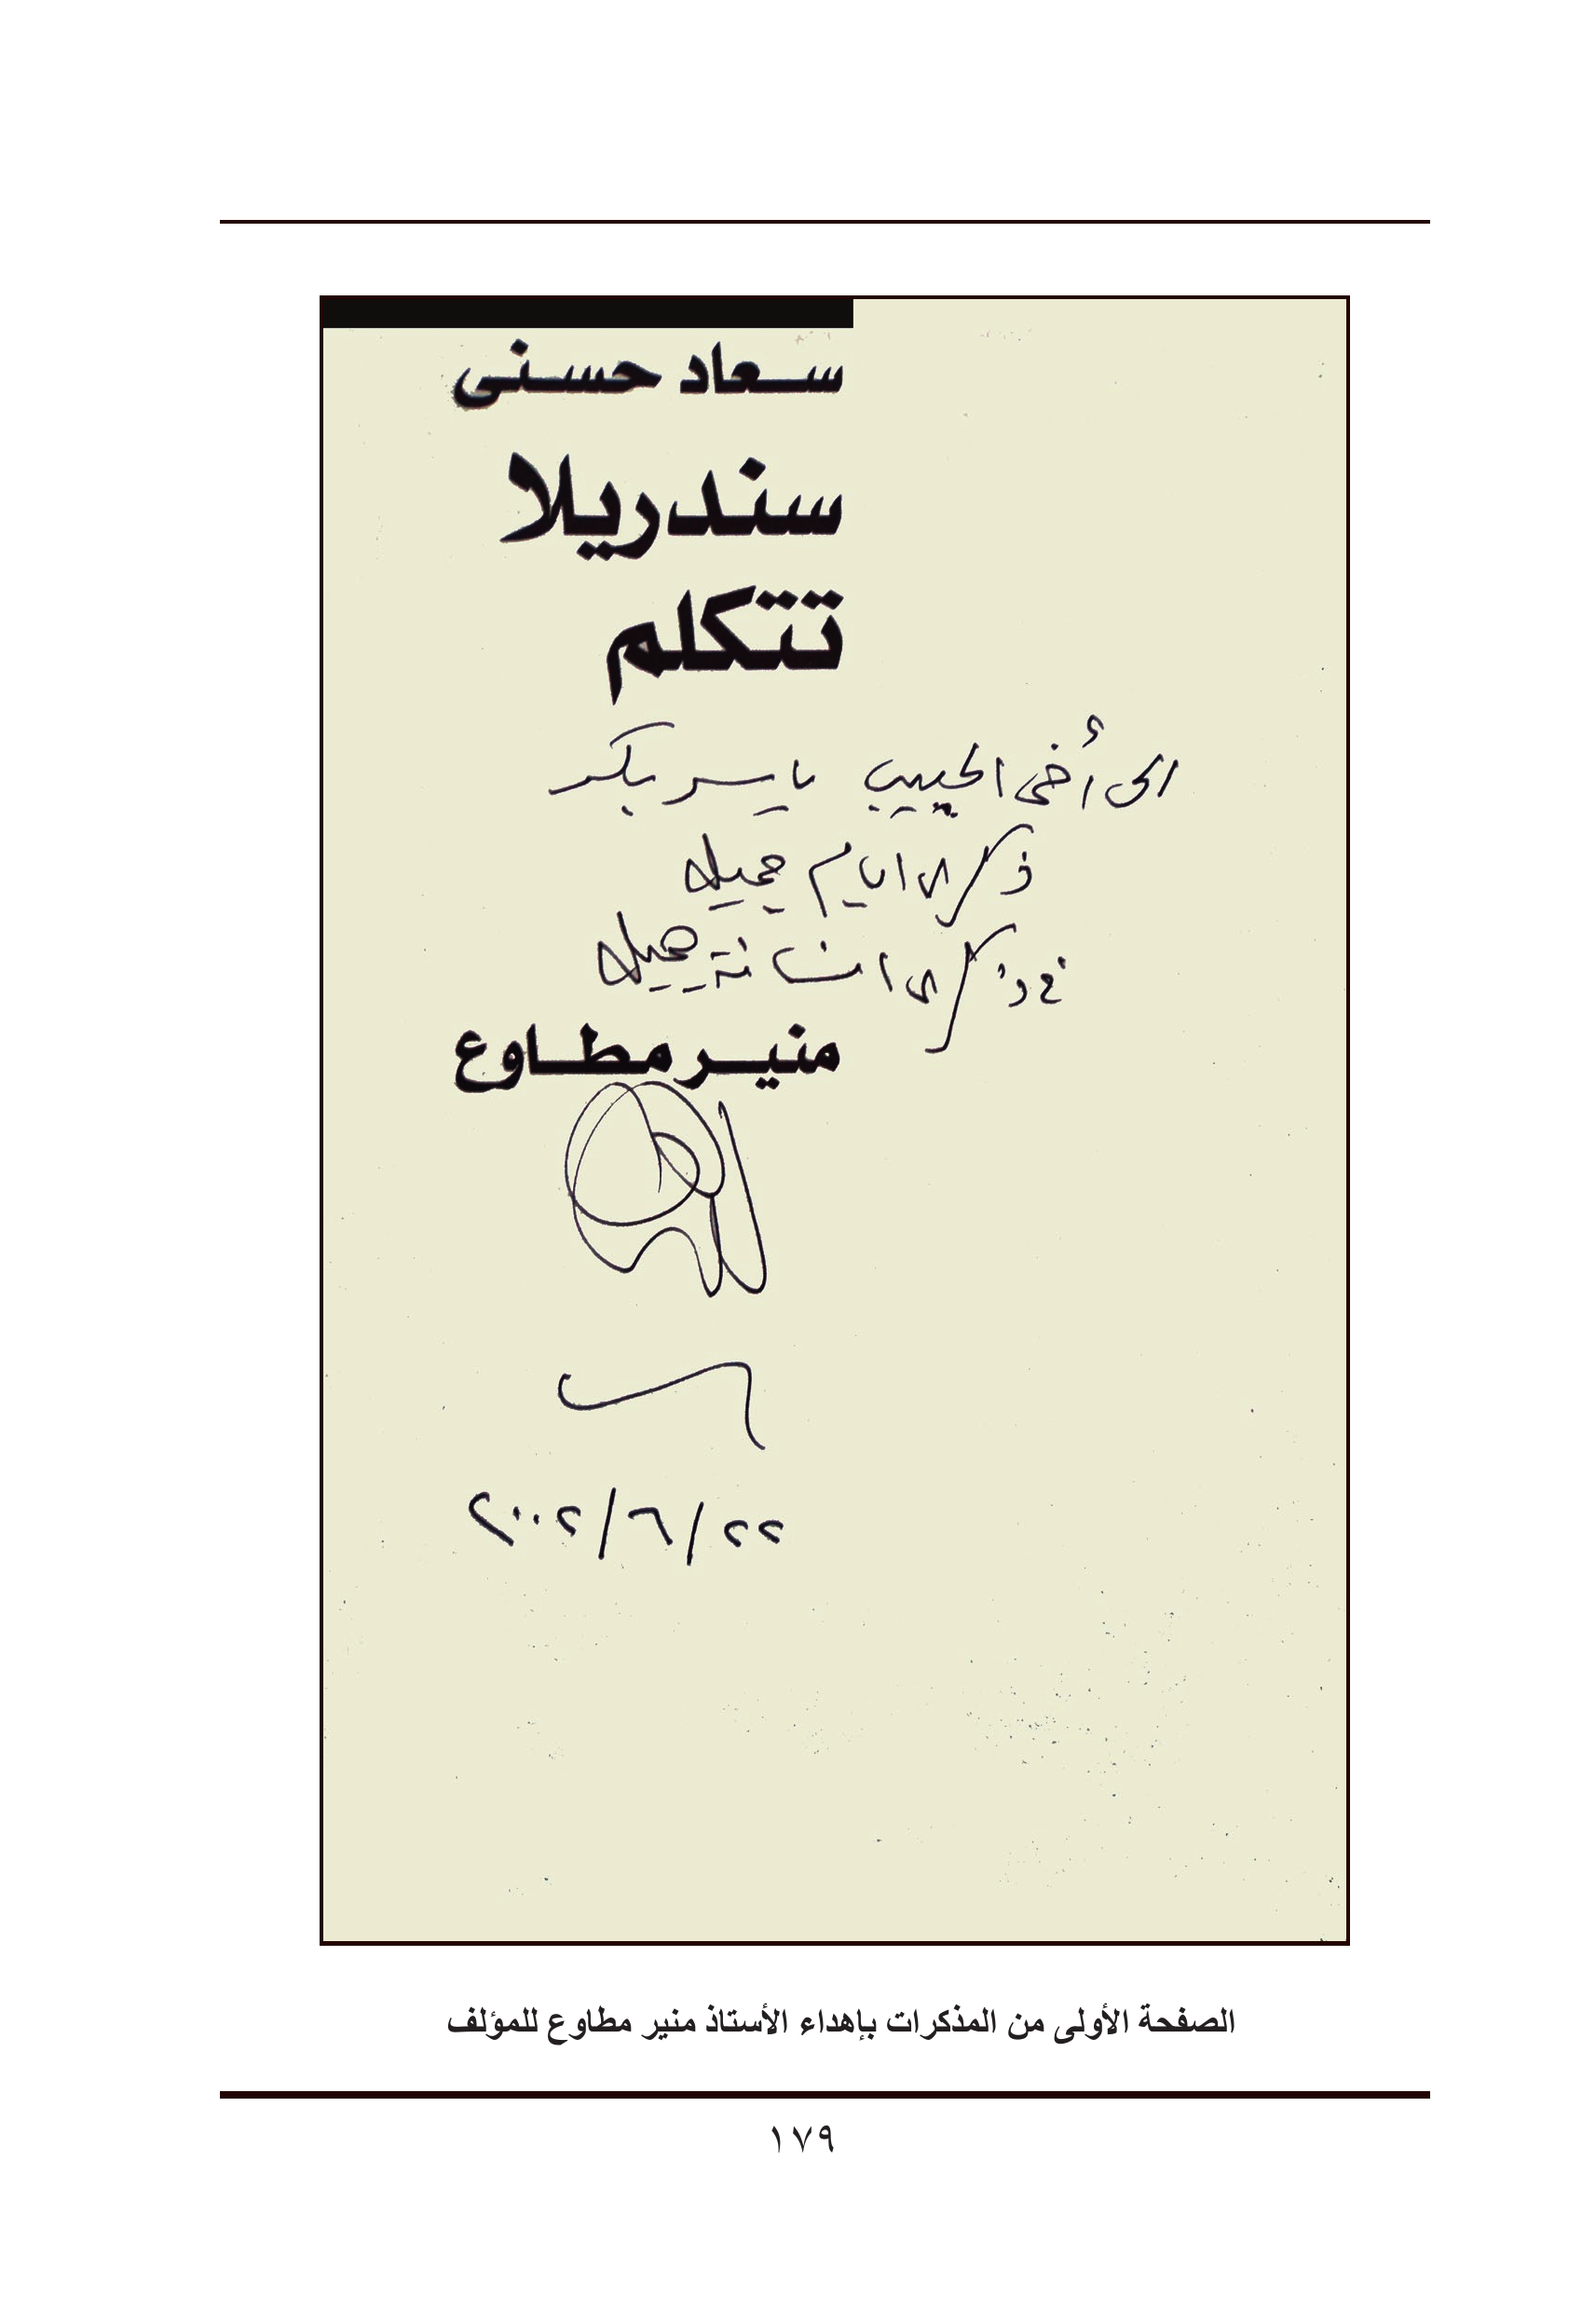 سعاد حسنى
سندريلا
تتكلم
الى أخى الحبيب ياسر بكر
ذكرى ايام جميله
فى ذكرى انسانة جميله
منير مطاوع
٢٢/٦/٢٠٠٢
الصفحة الأولى من المذكرات بإهداء الأستاذ منير مطاوع للمؤلف
١٧٩